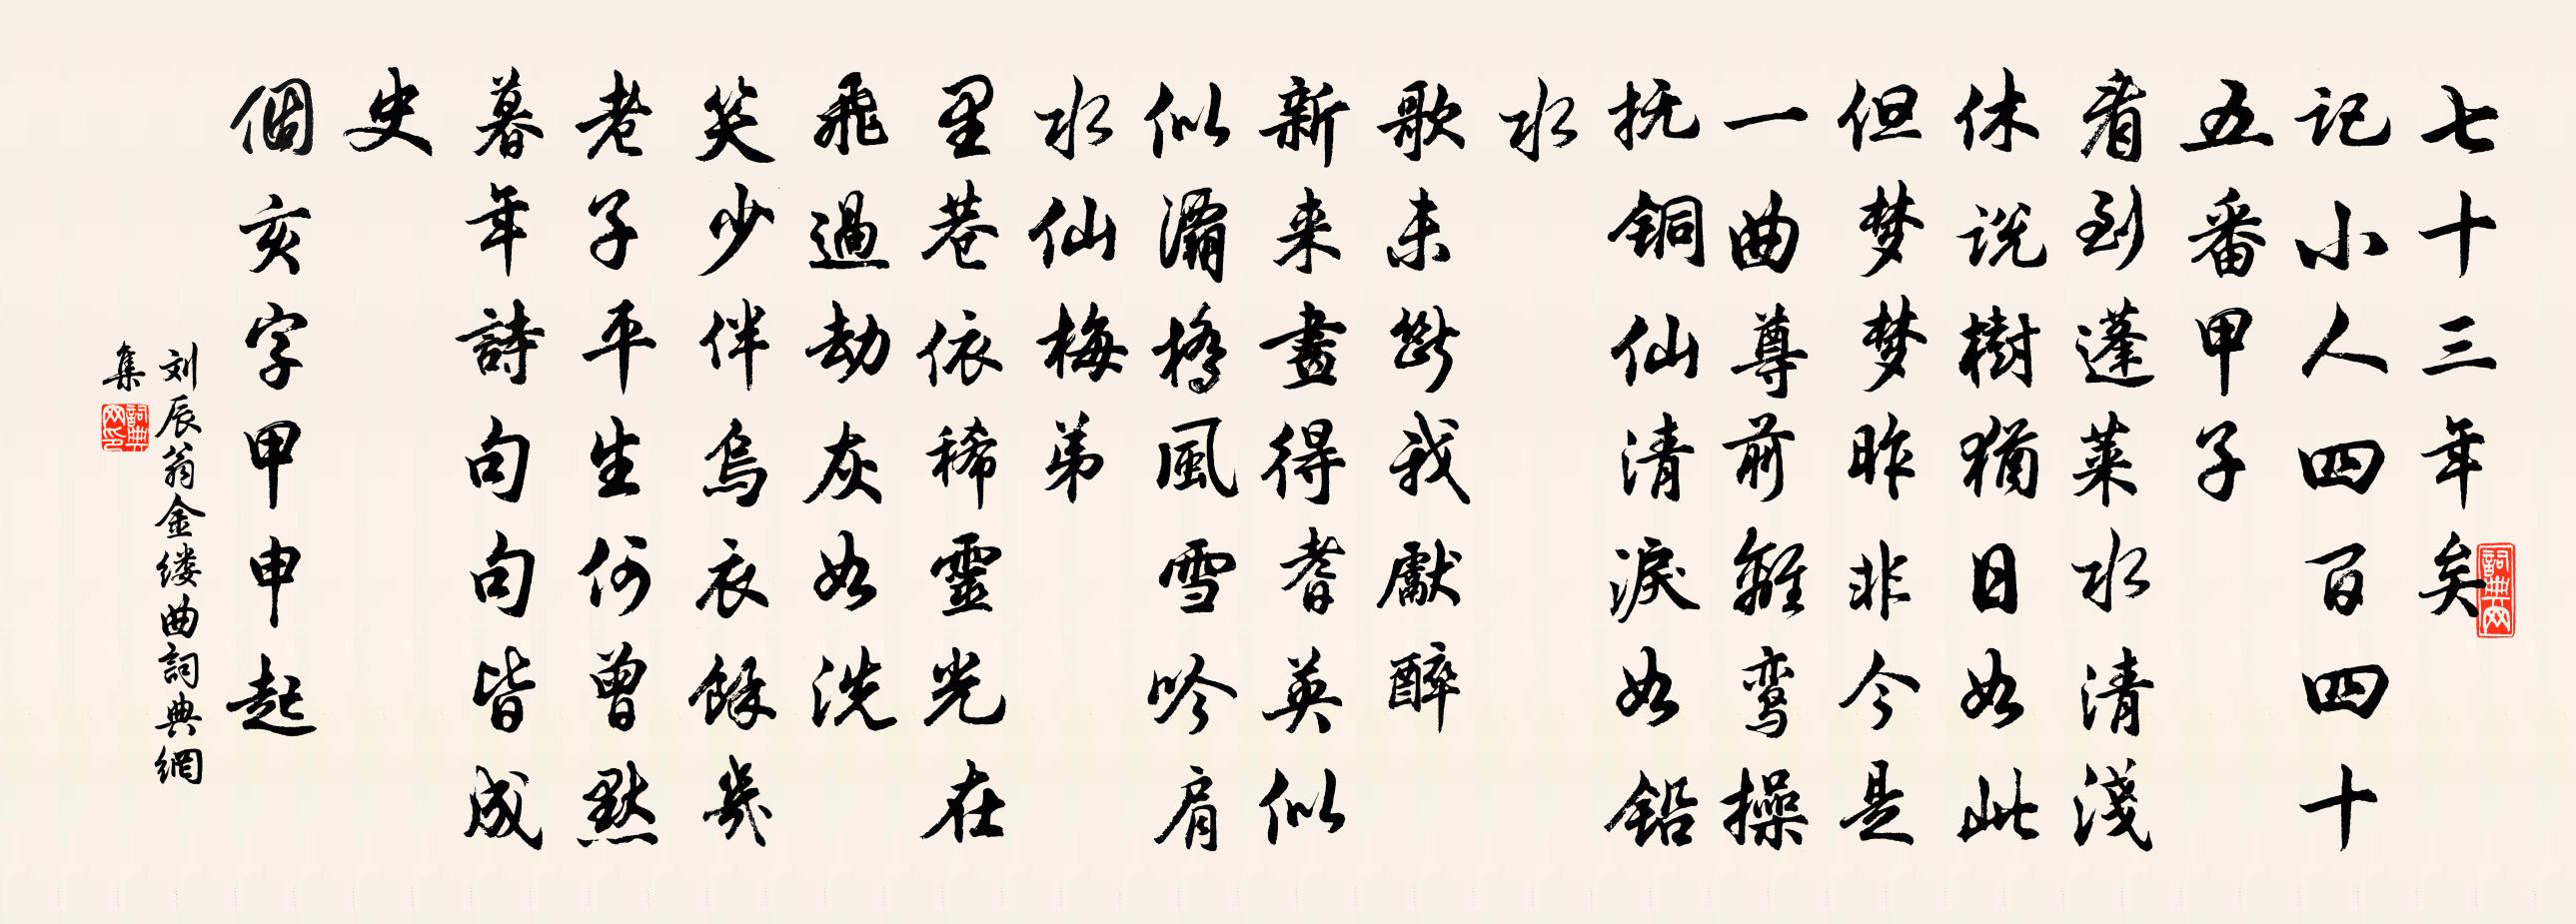 七十三年矣
记小人四百四十
五番甲子
看到蓬莱水清淺
休说樹猶日如此
但梦梦昨非今是
一曲尊前離鸾操
抚铜仙清淚如铅
水
歌未斷我獻醉
新来畫得耆英似
似灞橋風雪吟肩
水仙梅弟
里巷依稀靈光在
飛過劫灰如洗
笑少伴烏衣餘幾
老子平生何曾默
暮年詩句句皆成
史
個亥字甲申起
刘辰翁金缕曲詞典網
集
詞典网
詞典网印